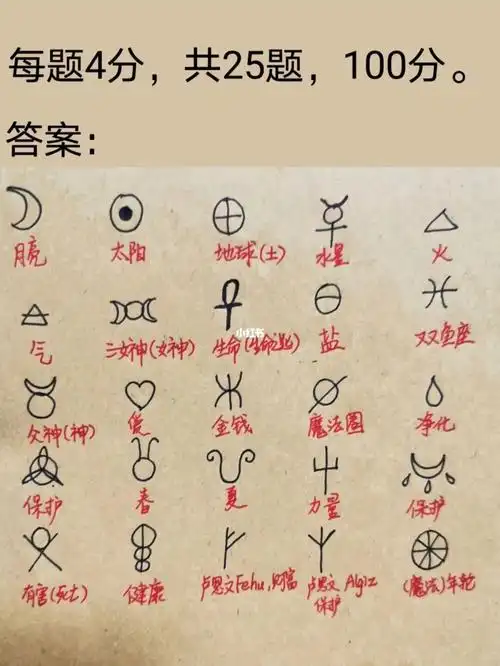 每题4分，共25题，100分。
答案：
月亮
太阳
地球(土)
水星
火
气
三女神(女神)
生命(生命匙)
盐
双鱼座
小红书
父神(神)
爱
金钱
魔法圈
净化
保护
春
夏
力量
保护
有害(死亡)
健康
卢恩文Fehu,财富
卢恩文 Algiz
保护
(魔法)年轮